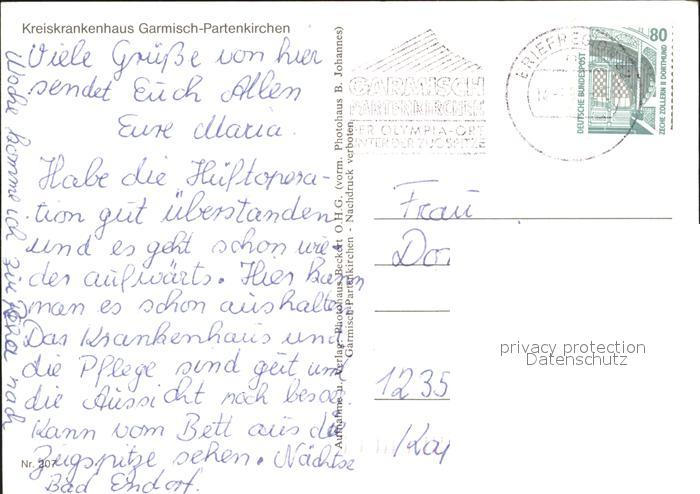 Kreiskrankenhaus Garmisch-Partenkirchen
Viele Grüße von hier
sendet Euch Allen
Eure Maria.
Habe die Hüftopera-
tion gut überstanden
und es geht schon wie-
der aufwärts. Hier kann
man es schon aushalten.
Das Krankenhaus und
die Pflege sind gut und
die Aussicht noch besser.
Kann vom Bett aus die
Zugspitze sehen. Nächste
Woche komme ich zur Reha nach
Bad Endorf.
Nr. 307
Aufnahme u. Verlag: Photohaus Beckert O.H.G. (vorm. Photohaus B. Johannes)
Garmisch-Partenkirchen - Nachdruck verboten
GARMISCH
PARTENKIRCHEN
DER OLYMPIA-ORT
UNTER DER ZUGSPITZE
80
DEUTSCHE BUNDESPOST
ZECHE ZOLLERN II DORTMUND
Frau
1235
privacy protection
Datenschutz